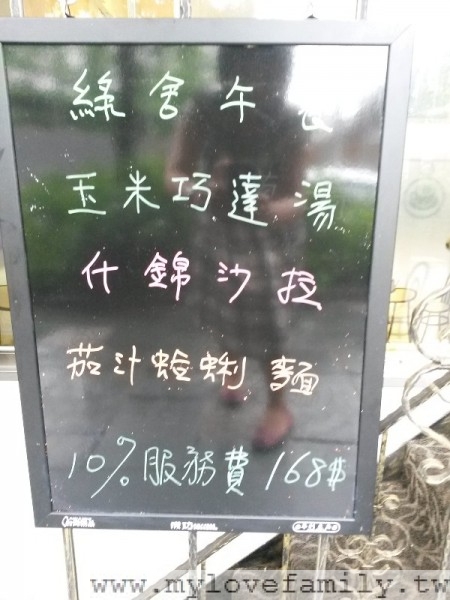 綠舍午
玉米巧達湯
什錦沙拉
茄汁蛤蜊麵
10% 服務費 168$
www.mylovefamily.tw